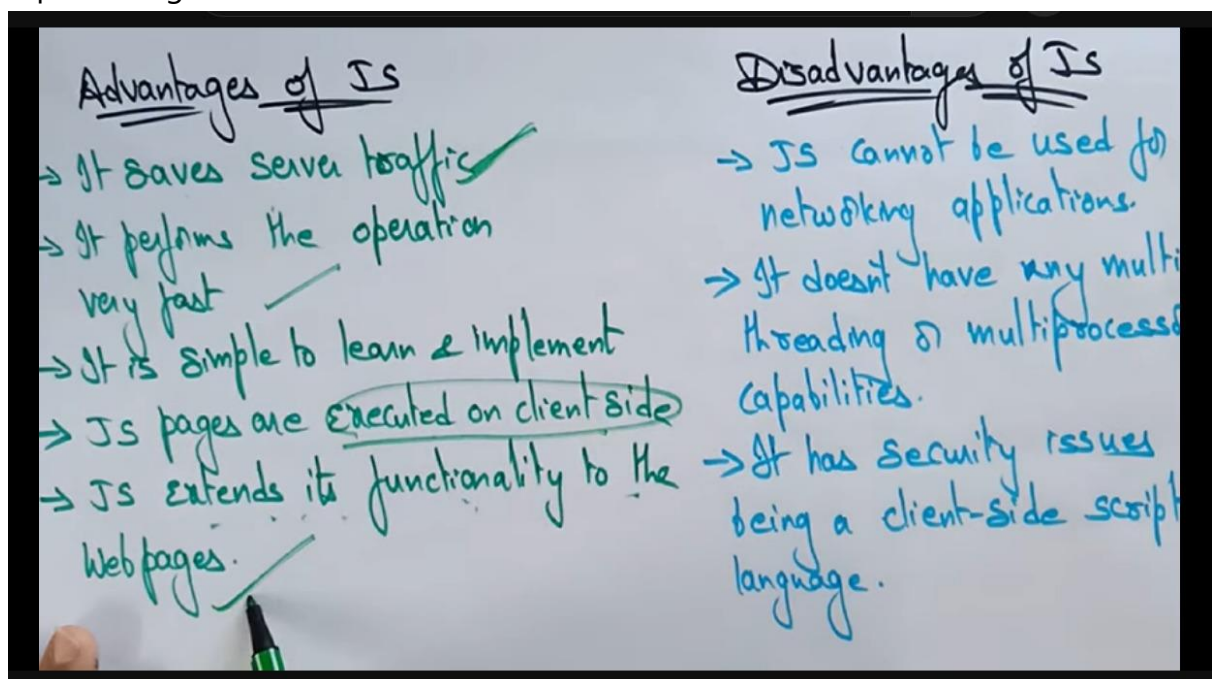 Advantages of JS
→ It saves server traffic
→ It performs the operation
very fast
→ It is simple to learn & implement
→ JS pages are executed on client side
→ JS extends its functionality to the
Web pages.
Disadvantages of JS
→ JS cannot be used for
networking applications.
→ It doesn't have any multi
threading or multiprocesso
capabilities.
→ It has security issues
being a client-side script
language.